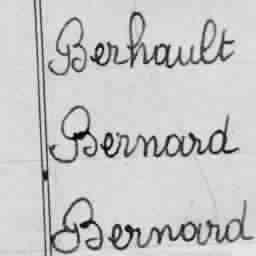 Berhault
Bernard
Bernard